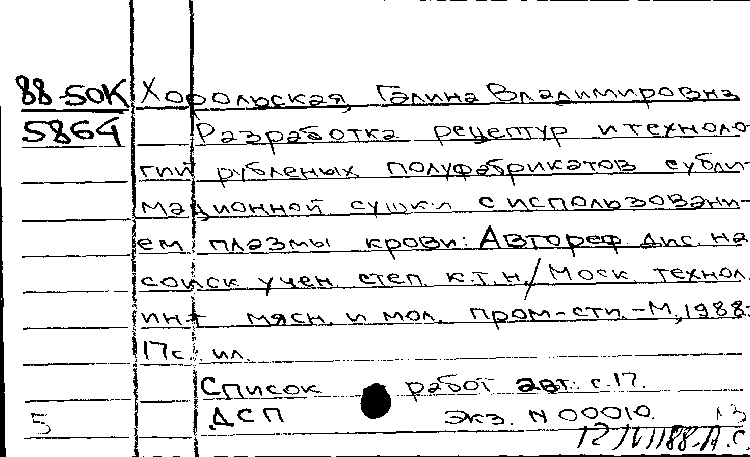 88-50К Хорольская, Галина Владимировна
5864 Разработка рецептур и техноло
гий рубленых полуфабрикатов субли-
мационной сушки с использовани-
ем плазмы крови: Автореф. дис. на
соиск учен степ. к.т.н./Моск технол.
ин-т мясн. и мол. пром-сти.-М, 1988-
17с ил.
Список работ авт. с.17.
5 ДСП экз. N 00010.